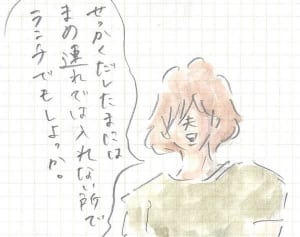 せっかくだしたまには
まめ連れでは入れない所で
ランチでもしよっか。
夫